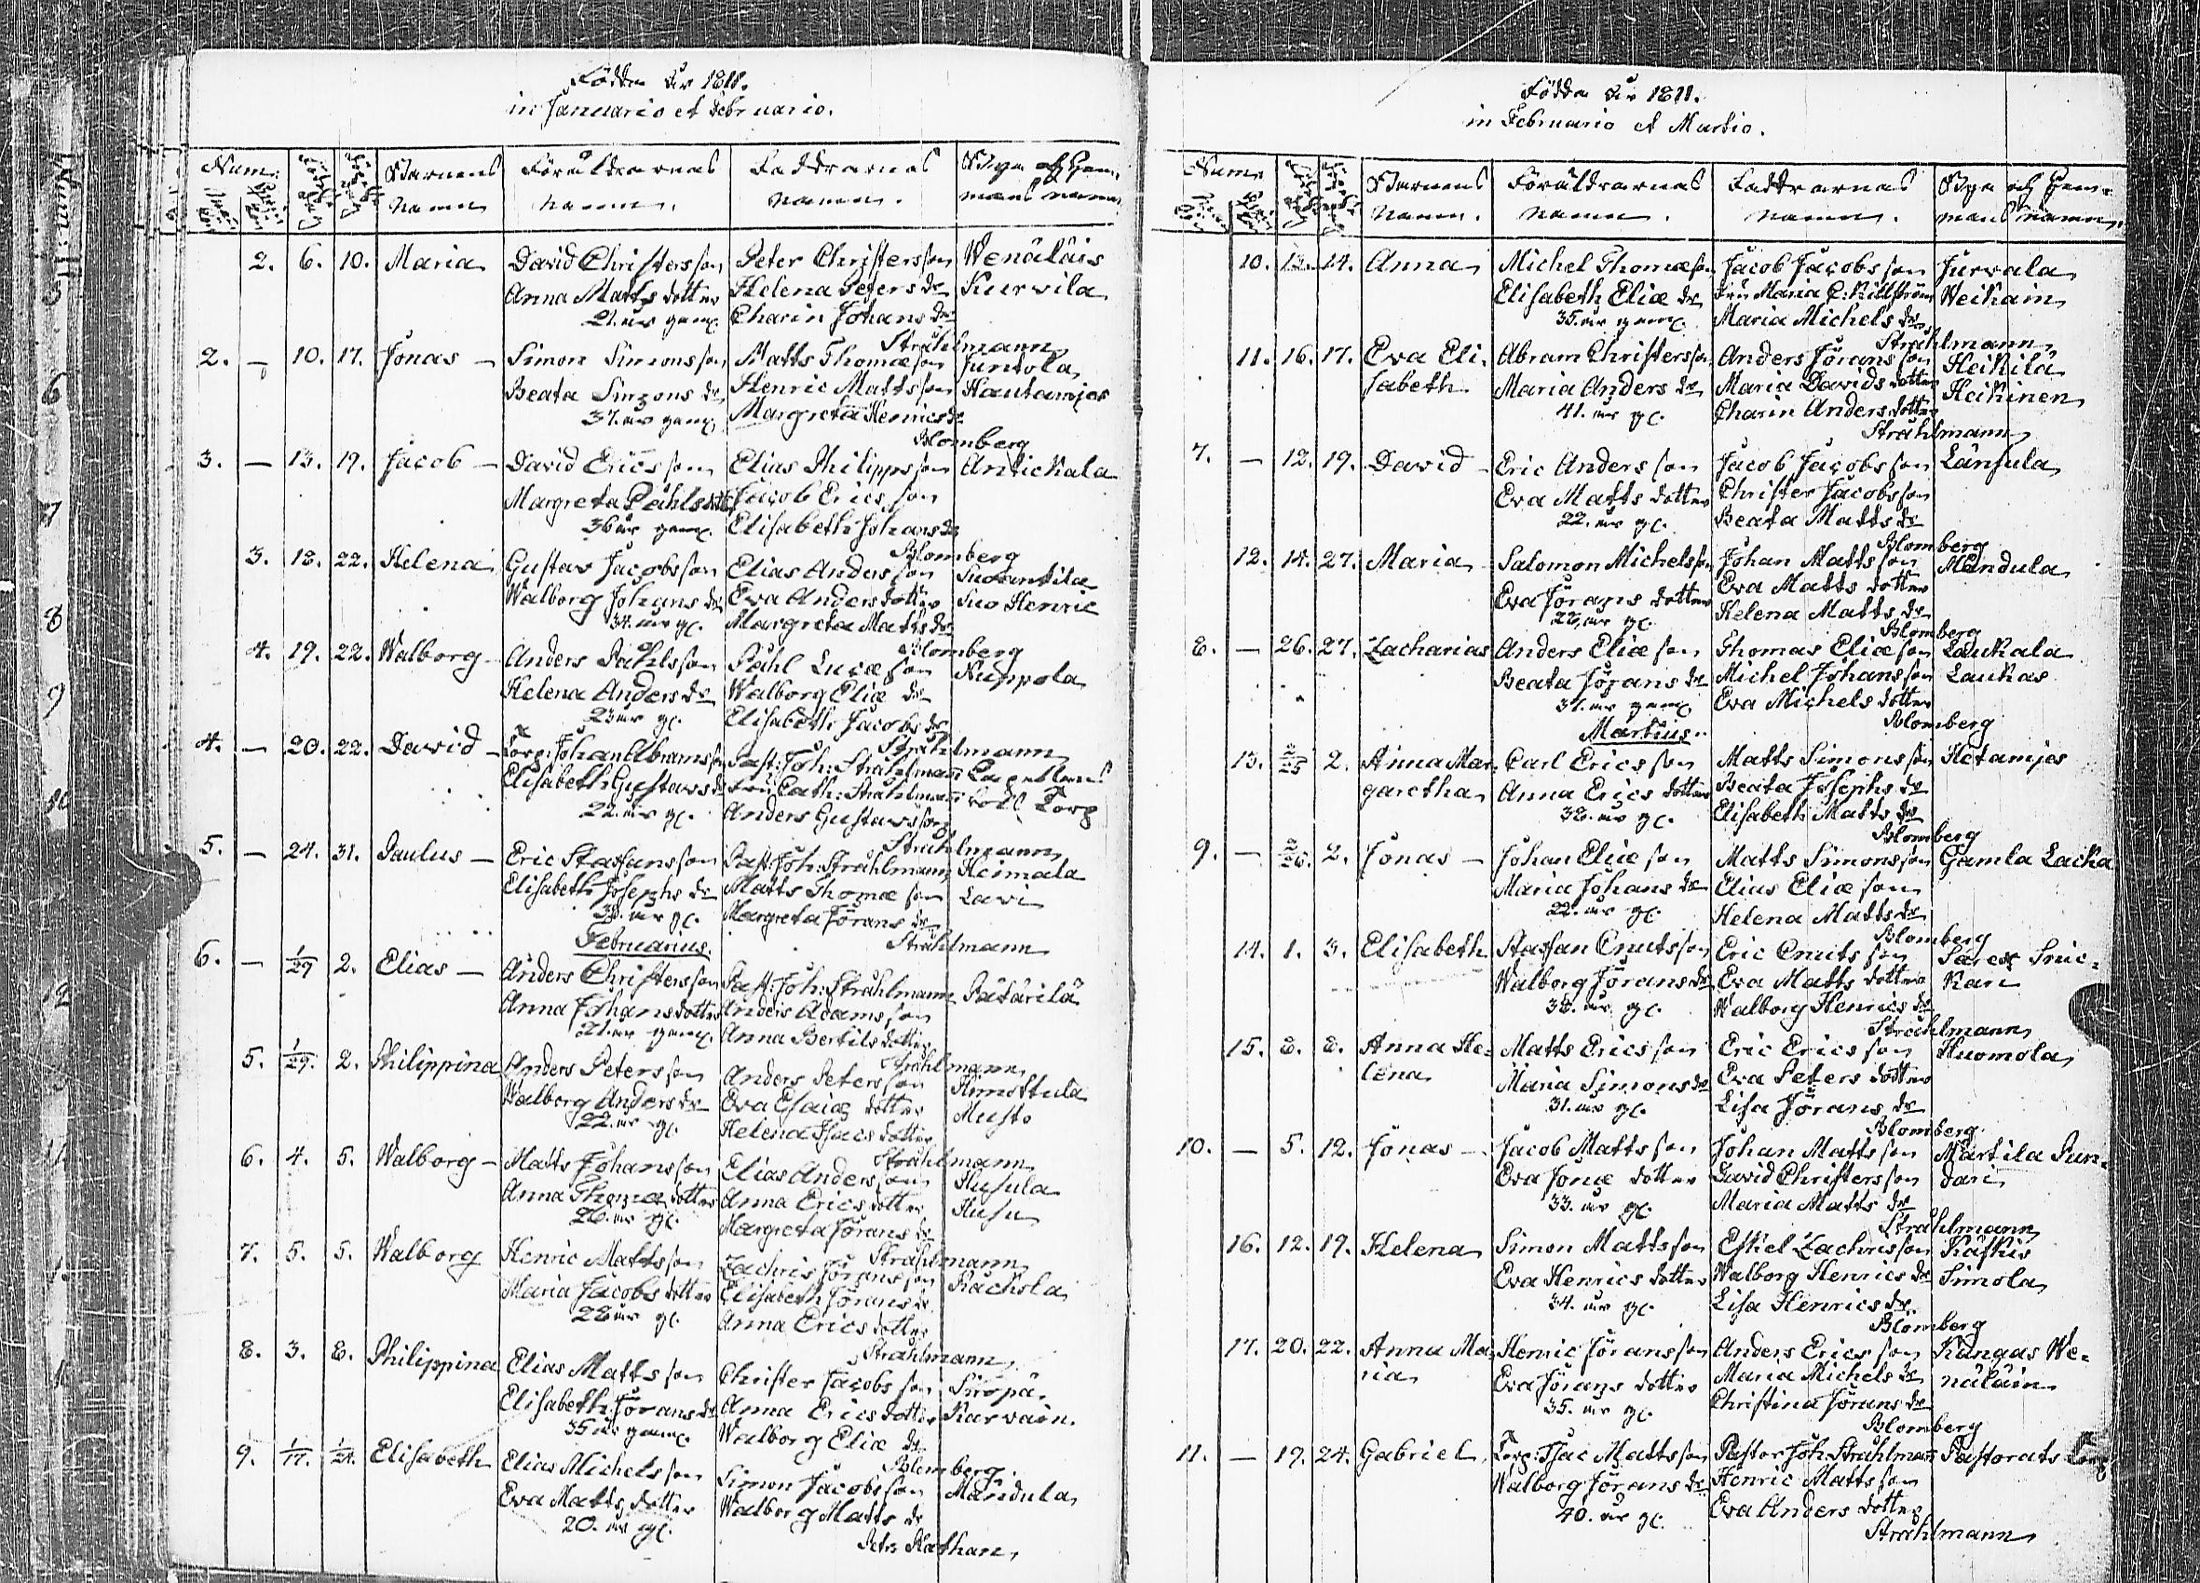 Födda År 1811.
in Januario et Februario.
Num:
Barnens namn
Föräldrarnas namn.
Faddrarnas namn.
Bya och Hemmans namn
2. 6. 10. Maria David Christersson Peter Christersson Wenäläis
Anna Matts dotter Helena Peters dr Kurvila
21. år gam. Charin Johans dr
Stråhlmann
2. — 10. 17. Jonas — Simon Simonsson Matts Thomæson Juntola
Beata Simons dr Henric Mattsson Hautamies
37. år gam. Margreta Henrics dr
Blomberg
3. — 13. 19. Jacob — David Ericsson Elias Philippsson Antickala
Margreta Påhls dr Jacob Ericsson
36 år gam. Elisabeth Johans dr
Blomberg
3. 18. 22. Helena Gustav Jacobsson Elias Andersson Suoanttila
Walborg Johans dr Eva Anders dotter Suo Henric
34. år gl. Margreta Matts dr
Blomberg
4. 19. 22. Walborg — Anders Påhlsson Påhl Lucæson Nuppola
Helena Anders dr Walborg Eliæ dr
23 år gl. Elisabeth Jacobs dr
Stråhlmann
4. — 20. 22. David — Torp: Johan Abramsson Past: Joh: Stråhlmann
Elisabeth Gustavs dr Fru Cath: Stråhlmann Torp
22. år gl. Anders Gustavsson
Stråhlmann
5. — 24. 31. Paulus — Eric Staffansson Past: Joh: Stråhlmann Heimala
Elisabeth Josephs dr Matts Thomæson Lavi
38. år gl. Margreta Jörans dr
Februarius. Stråhlmann
6. — 1/29 2. Elias — Anders Christersson Past: Joh: Stråhlmann Pätärilä
Anna Johans dotter Anders Adamsson
21. år gam. Anna Bertils dotter
Stråhlmann
5. 1/29. 2. Philippina Anders Petersson Anders Petersson Himottula
Walborg Anders dr Eva Esaiæ dotter Musto
22. år gl. Helena Isacs dotter
Stråhlmann
6. 4. 5. Walborg — Matts Johansson Elias Andersson Husula
Anna Thomæ dotter Anna Erics dotter Husu
26. år gl. Margreta Jörans dr
Stråhlmann
7. 5. 5. Walborg Henric Mattsson Zachris Jöransson Räckola
Maria Jacobs dotter Elisabeth Jörans dr
28 år gl. Anna Erics dotter
Stråhlmann
8. 3. 8. Philippina Elias Mattsson Christer Jacobsson Siropä
Elisabeth Jörans dr Anna Erics dotter Karvain.
35 år gam. Walborg Eliæ dr
Blomberg.
9. 1/17. 1/21. Elisabeth Elias Michelsson Simon Jacobsson Mändula
Eva Matts dotter Walborg Matts dr
20. år gl.
Petr: Rathan
Födda År 1811.
in Februario et Martio.
Num:
Barnens namn.
Föräldrarnas namn.
Faddrarnas namn.
Bya och Hemmans namn.
10. 13. 14. Anna Michel Thomæson Jacob Jacobsson Jurvala
Elisabeth Eliæ dr Fru Maria C: Killström Weikain
35. år gam. Maria Michels dr
Stråhlmann
11. 16. 17. Eva Eli- Abram Christersson Anders Jöransson Heikilä
sabeth Maria Anders dr Maria Davids dotter Heikinen
41. år gl. Charin Anders dotter
Stråhlmann
7. — 12. 19. David — Eric Andersson Jacob Jacobsson Länsula
Eva Matts dotter Christer Jacobsson
22. år gl. Beata Matts dr
Blomberg
12. 14. 27. Maria Salomon Michelsson Johan Mattsson Mändula
Eva Jörans dotter Eva Matts dotter
22. år gl. Helena Matts dr
Blomberg
8. — 26. 27. Zacharias Anders Eliæson Thomas Eliæson Laukala
Beata Jörans dr Michel Johansson Laukas
31. år gam. Eva Michels dotter
Martius. Blomberg
13. 2/25 2. Anna Mar- Carl Ericsson Matts Simonsson Hetamies
garetha Anna Erics dotter Beata Josephs dr
38. år gl. Elisabeth Matts dr
Blomberg
9. — 2/26. 2. Jonas — Johan Eliæson Matts Simonsson Gamla Lacka
Maria Johans dr Elias Eliæson
22. år gl. Helena Matts dr
Blomberg
14. 1. 3. Elisabeth Staffan Cnutsson Eric Cnutsson
Walborg Jörans dr Eva Matts dotter
38. år gl. Walborg Henrics dr
Stråhlmann
15. 8. 8. Anna He- Matts Ericsson Eric Ericsson Huomola
lena Maria Simons dr Eva Peters dotter
31. år gl. Lisa Jörans dr
Blomberg.
10. — 5. 12. Jonas — Jacob Mattsson Johan Mattsson Martila Pun-
Eva Jonæ dotter David Christersson dari
33. år gl. Maria Matts dr
Stråhlmann
16. 12. 19. Helena Simon Mattsson Eskel Zachrisson Käskis
Eva Henrics dotter Walborg Henrics dr Simola
34. år gl. Lisa Henrics dr.
Blomberg
17. 20. 22. Anna Ma- Henric Jöransson Anders Ericsson Kangas We-
ria Eva Jörans dotter Maria Michels dr näläin
35. år gl. Christina Jörans dr
Blomberg
11. — 19. 24. Gabriel Torp: Isac Mattsson Pastor Joh: Stråhlman Pastorats Torp
Walborg Jörans dr Henric Mattsson
40. år gl. Eva Anders dotter
Stråhlmann